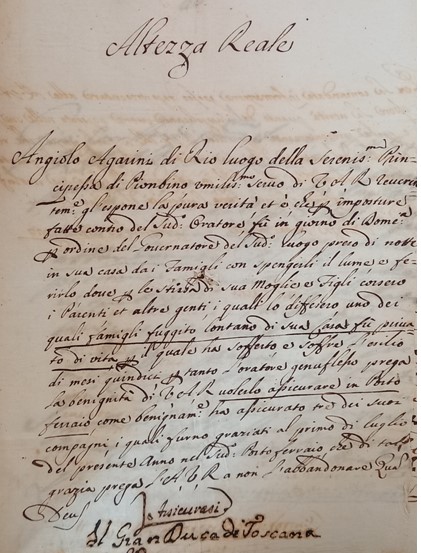 Altezza Reale
Angiolo Agarini di Rio luogo della Serenis.ma Prin-
cipessa di Pionbino umilis.mo Servo di V A R reveren
tem.e gl'espone la pura verità et è che p imposture
fatte contro del Sud.o Oratore fu in giorno di Dome.ca
p ordine del Governatore del Sud.o luogo preso di notte
in sua casa da i famigli con spengerli il lume e fe-
rirlo dove p lo Strida di sua Moglie e figli corsero
i Parenti et altre genti i quali lo difesero uno dei
quali famigli fuggito lontano di sua Casa fù priva
to di vita p il quale ha sofferto e soffre l'esilio
di mesi quindici p tanto l'oratore genuflesso prega
la benignità di V A R volerlo assicurare in Porto
ferraio come benignam.e ha assicurato tre dei suoi
compagni i quali furno graziati al primo di luglio
del presente Anno nel Sud.o Porto ferraio che di tal
grazia prega l'A V R a non l'abbandonare Qua
Deus
Assicurasi
Il Gran Duca di Toscana